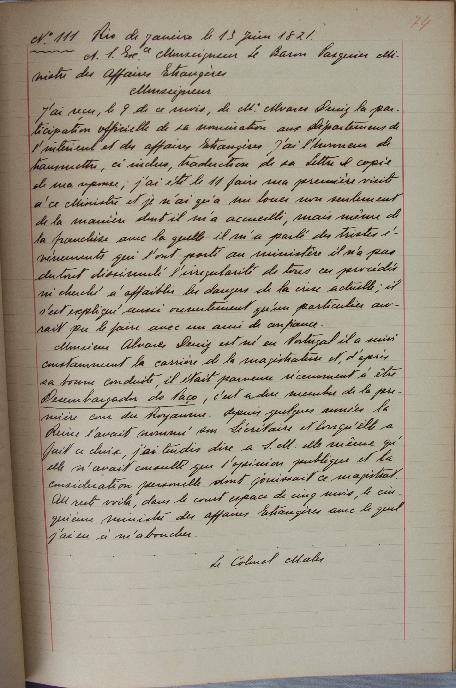 74
Nº 111 Rio de Janeiro le 13 Juin 1821.
A. S. Exce Monseigneur Le Baron Pasquier Mi-
nistre des Affaires Etrangères
Monseigneur
J'ai reçu, le 9 de ce mois, de Mr. Alvares Diniz la par-
ticipation officielle de sa nomination aux départemens de
l'intérieur et des affaires Etrangères J'ai l'honneur de
transmettre, ci inclus, traduction de sa lettre et copie
de ma reponse; j'ai été le 11 faire ma première visite
a' ce Ministre et je n'ai qu'a me louer non seulement
de la manière dont il m'a accueilli, mais même de
la franchise avec la quelle il m'a parlé des tristes é-
vénements qui l'ont porté au ministère il n'a pas
du tout dissimulé l'irregularité de tous ces procédés
ni cherché a' affaiblir les dangers de la crise actuelle; il
s'est expliqué aussi ouvertement qu'un particulier au-
rait pu le faire avec un ami de confiance.
Monsieur Alvares Diniz est né en Portugal il a suivi
constamment la carrière de la magistrature et, d'après
sa bonne conduite, il était parvenu récemment a' être
Desembargador do Paço, c'est a dire membre de la pre-
mière cour du Royaume. depuis quelques années la
Reine l'avait nommé son Sécrétaire et lorsqu'elle a
fait ce choix, j'ai entendu dire a S.M. elle même qu'
elle n'avait consulté que l'opinion publique et la
considération personnelle dont jouissait ce magistrat.
Au reste voilà, dans le court espace de cinq mois, le cin-
quième ministre des affaires Etrangères avec le quel
j'ai eu a' m'aboucher.
Le Colonel Maler